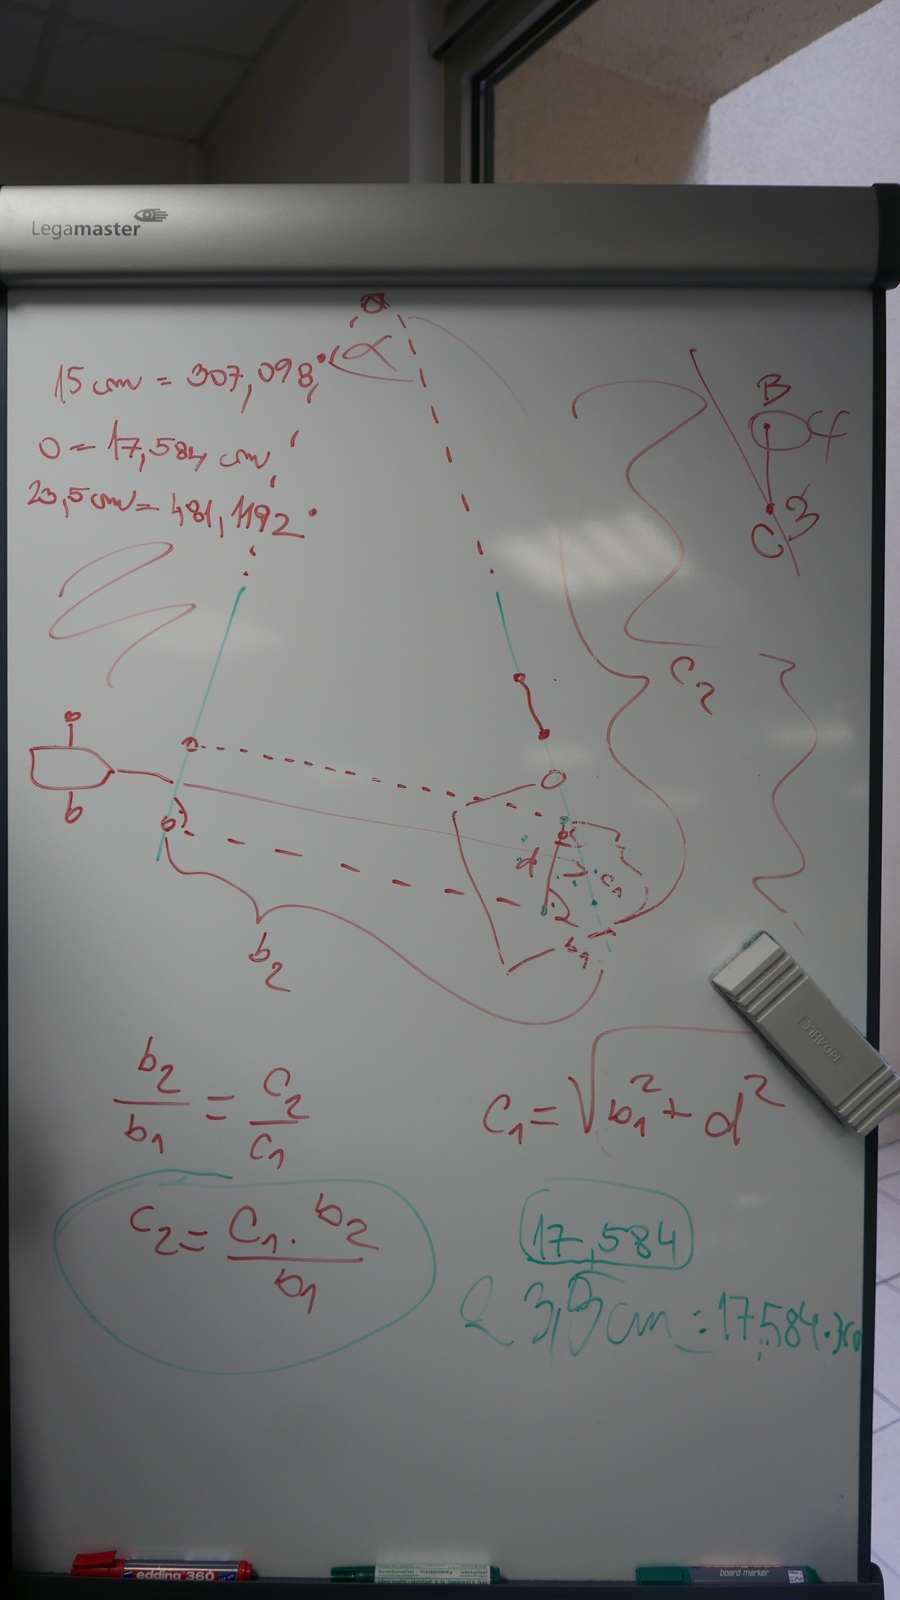 Legamaster
α
15 cm = 307,098°
O = 17,584 cm
23,5 cm = 481,1192°
B
4
C 3
c₂
b
d
c₁
b₁
b₂
b₂/b₁ = c₂/c₁
c₁ = √b₁² + d²
c₂ = c₁ · b₂/b₁
17,584
23,5 cm : 17,584 · 360
edding 360
board marker